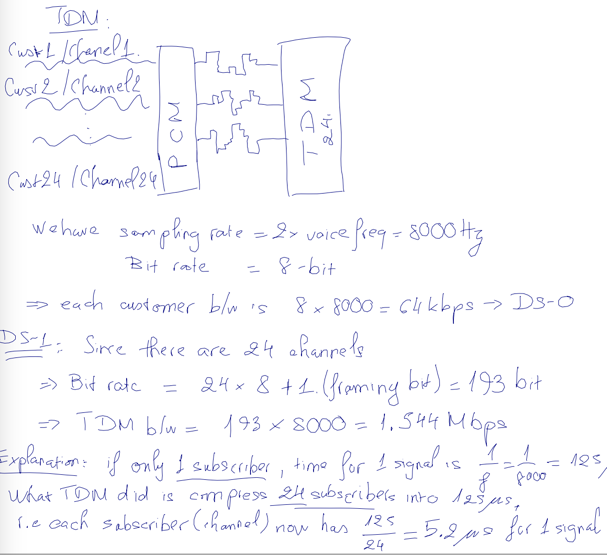 TDM:
Cust1/Chanel1.
Cust2/Channel2
Cust24/Channel24
PCM
TDM
24.
We have sampling rate = 2x voice freq = 8000 Hz
Bit rate = 8-bit
⇒ each customer b/w is 8 x 8000 = 64 kbps → DS-0
DS-1: Since there are 24 channels
⇒ Bit rate = 24 x 8 + 1 (framing bit) = 193 bit
⇒ TDM b/w = 193 x 8000 = 1.544 Mbps
Explanation: if only 1 subscriber, time for 1 signal is 1/f = 1/8000 = 125,
What TDM did is compress 24 subscribers into 125 µs,
i.e each subscriber (channel) now has 125/24 = 5.2 µs for 1 signal